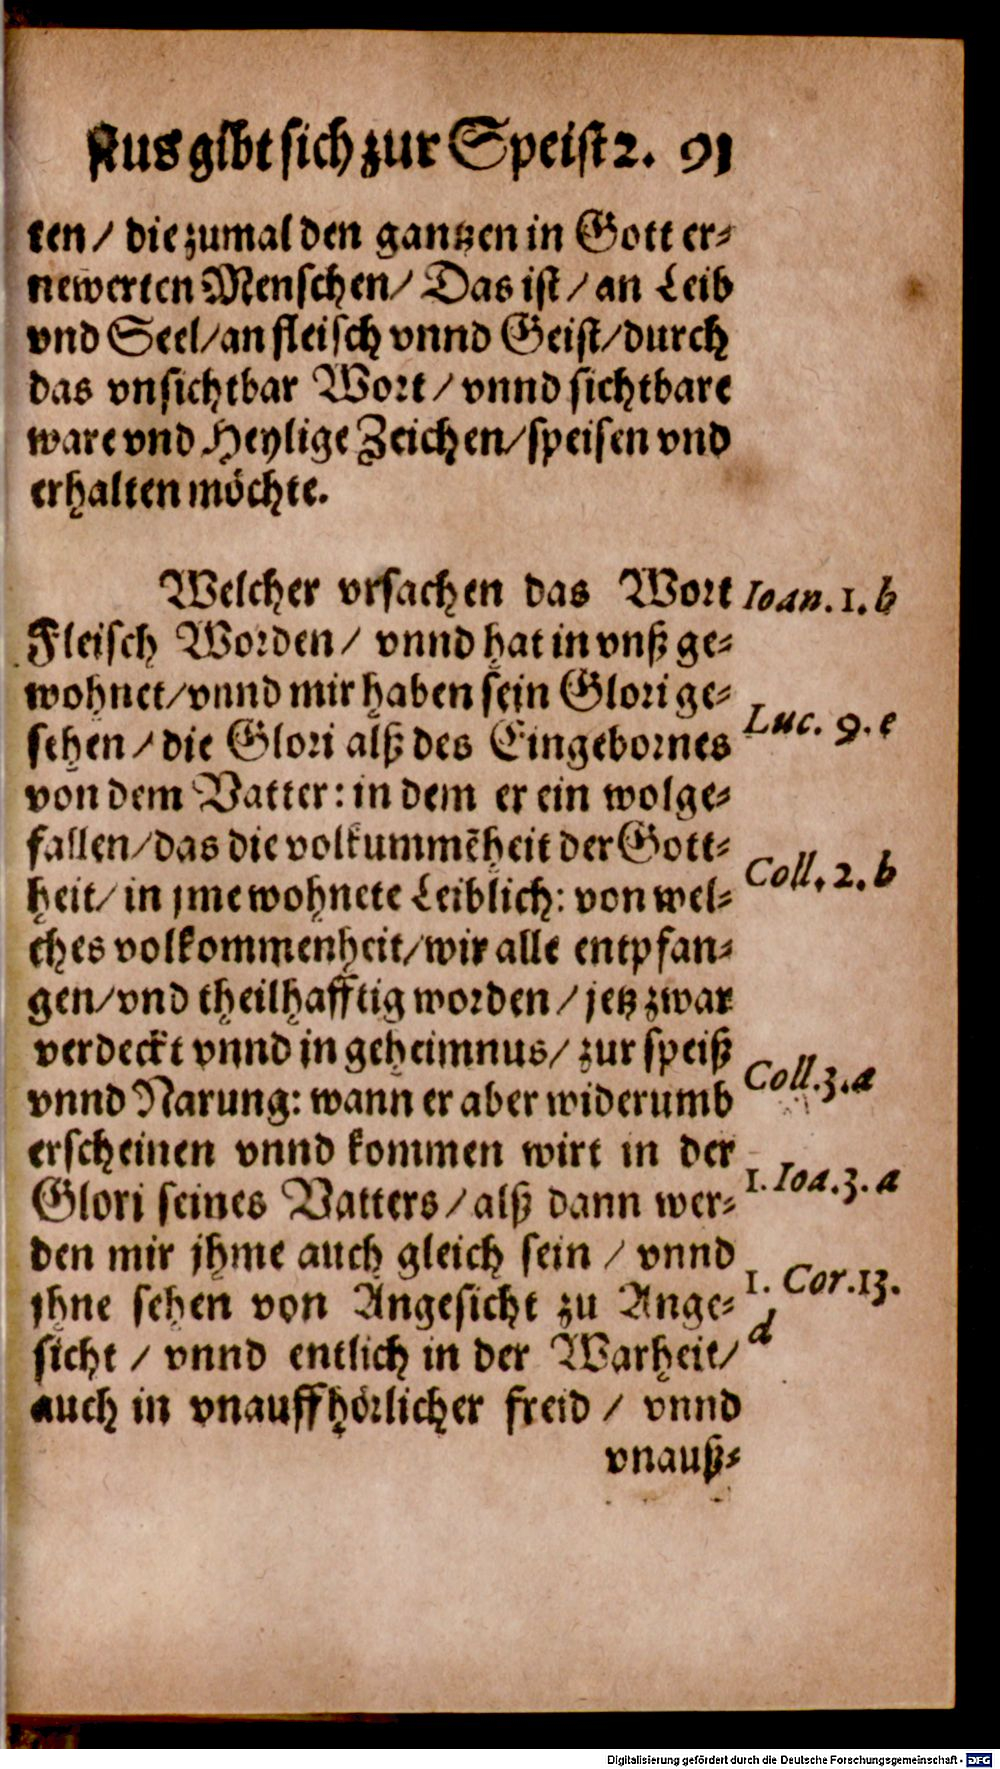 stus gibt sich zur Speist2. 91
ten / die zumal den gantzen in Gott er⸗
newerten Menschen / Das ist / an Leib
vnd Seel / an fleisch vnnd Geist / durch
das vnsichtbar Wort / vnnd sichtbare
ware vnd Heylige Zeichen / speisen vnd
erhalten möchte.
Welcher vrsachen das Wort
Ioan. 1. b
Fleisch Worden / vnnd hat in vnß ge⸗
wohnet / vnnd mir haben sein Glori ge⸗
Luc. 9. e
sehen / die Glori alß des Eingebornes
von dem Vatter: in dem er ein wolge⸗
fallen / das die volkummēheit der Gott⸗
Coll. 2. b
heit / in jme wohnete Leiblich: von wel⸗
ches volkommenheit / wir alle entpfan⸗
gen / vnd theilhafftig worden / jetz zwar
verdeckt vnnd in geheimnus / zur speiß
Coll. 3. a
vnnd Narung: wann er aber widerumb
erscheinen vnnd kommen wirt in der
1. Ioa. 3. a
Glori seines Vatters / alß dann wer⸗
den mir jhme auch gleich sein / vnnd
1. Cor. 13.
jhne sehen von Angesicht zu Ange⸗
d
sicht / vnnd entlich in der Warheit /
auch in vnauffhörlicher freid / vnnd
vnauß⸗
Digitalisierung gefördert durch die Deutsche Forschungsgemeinschaft - DFG